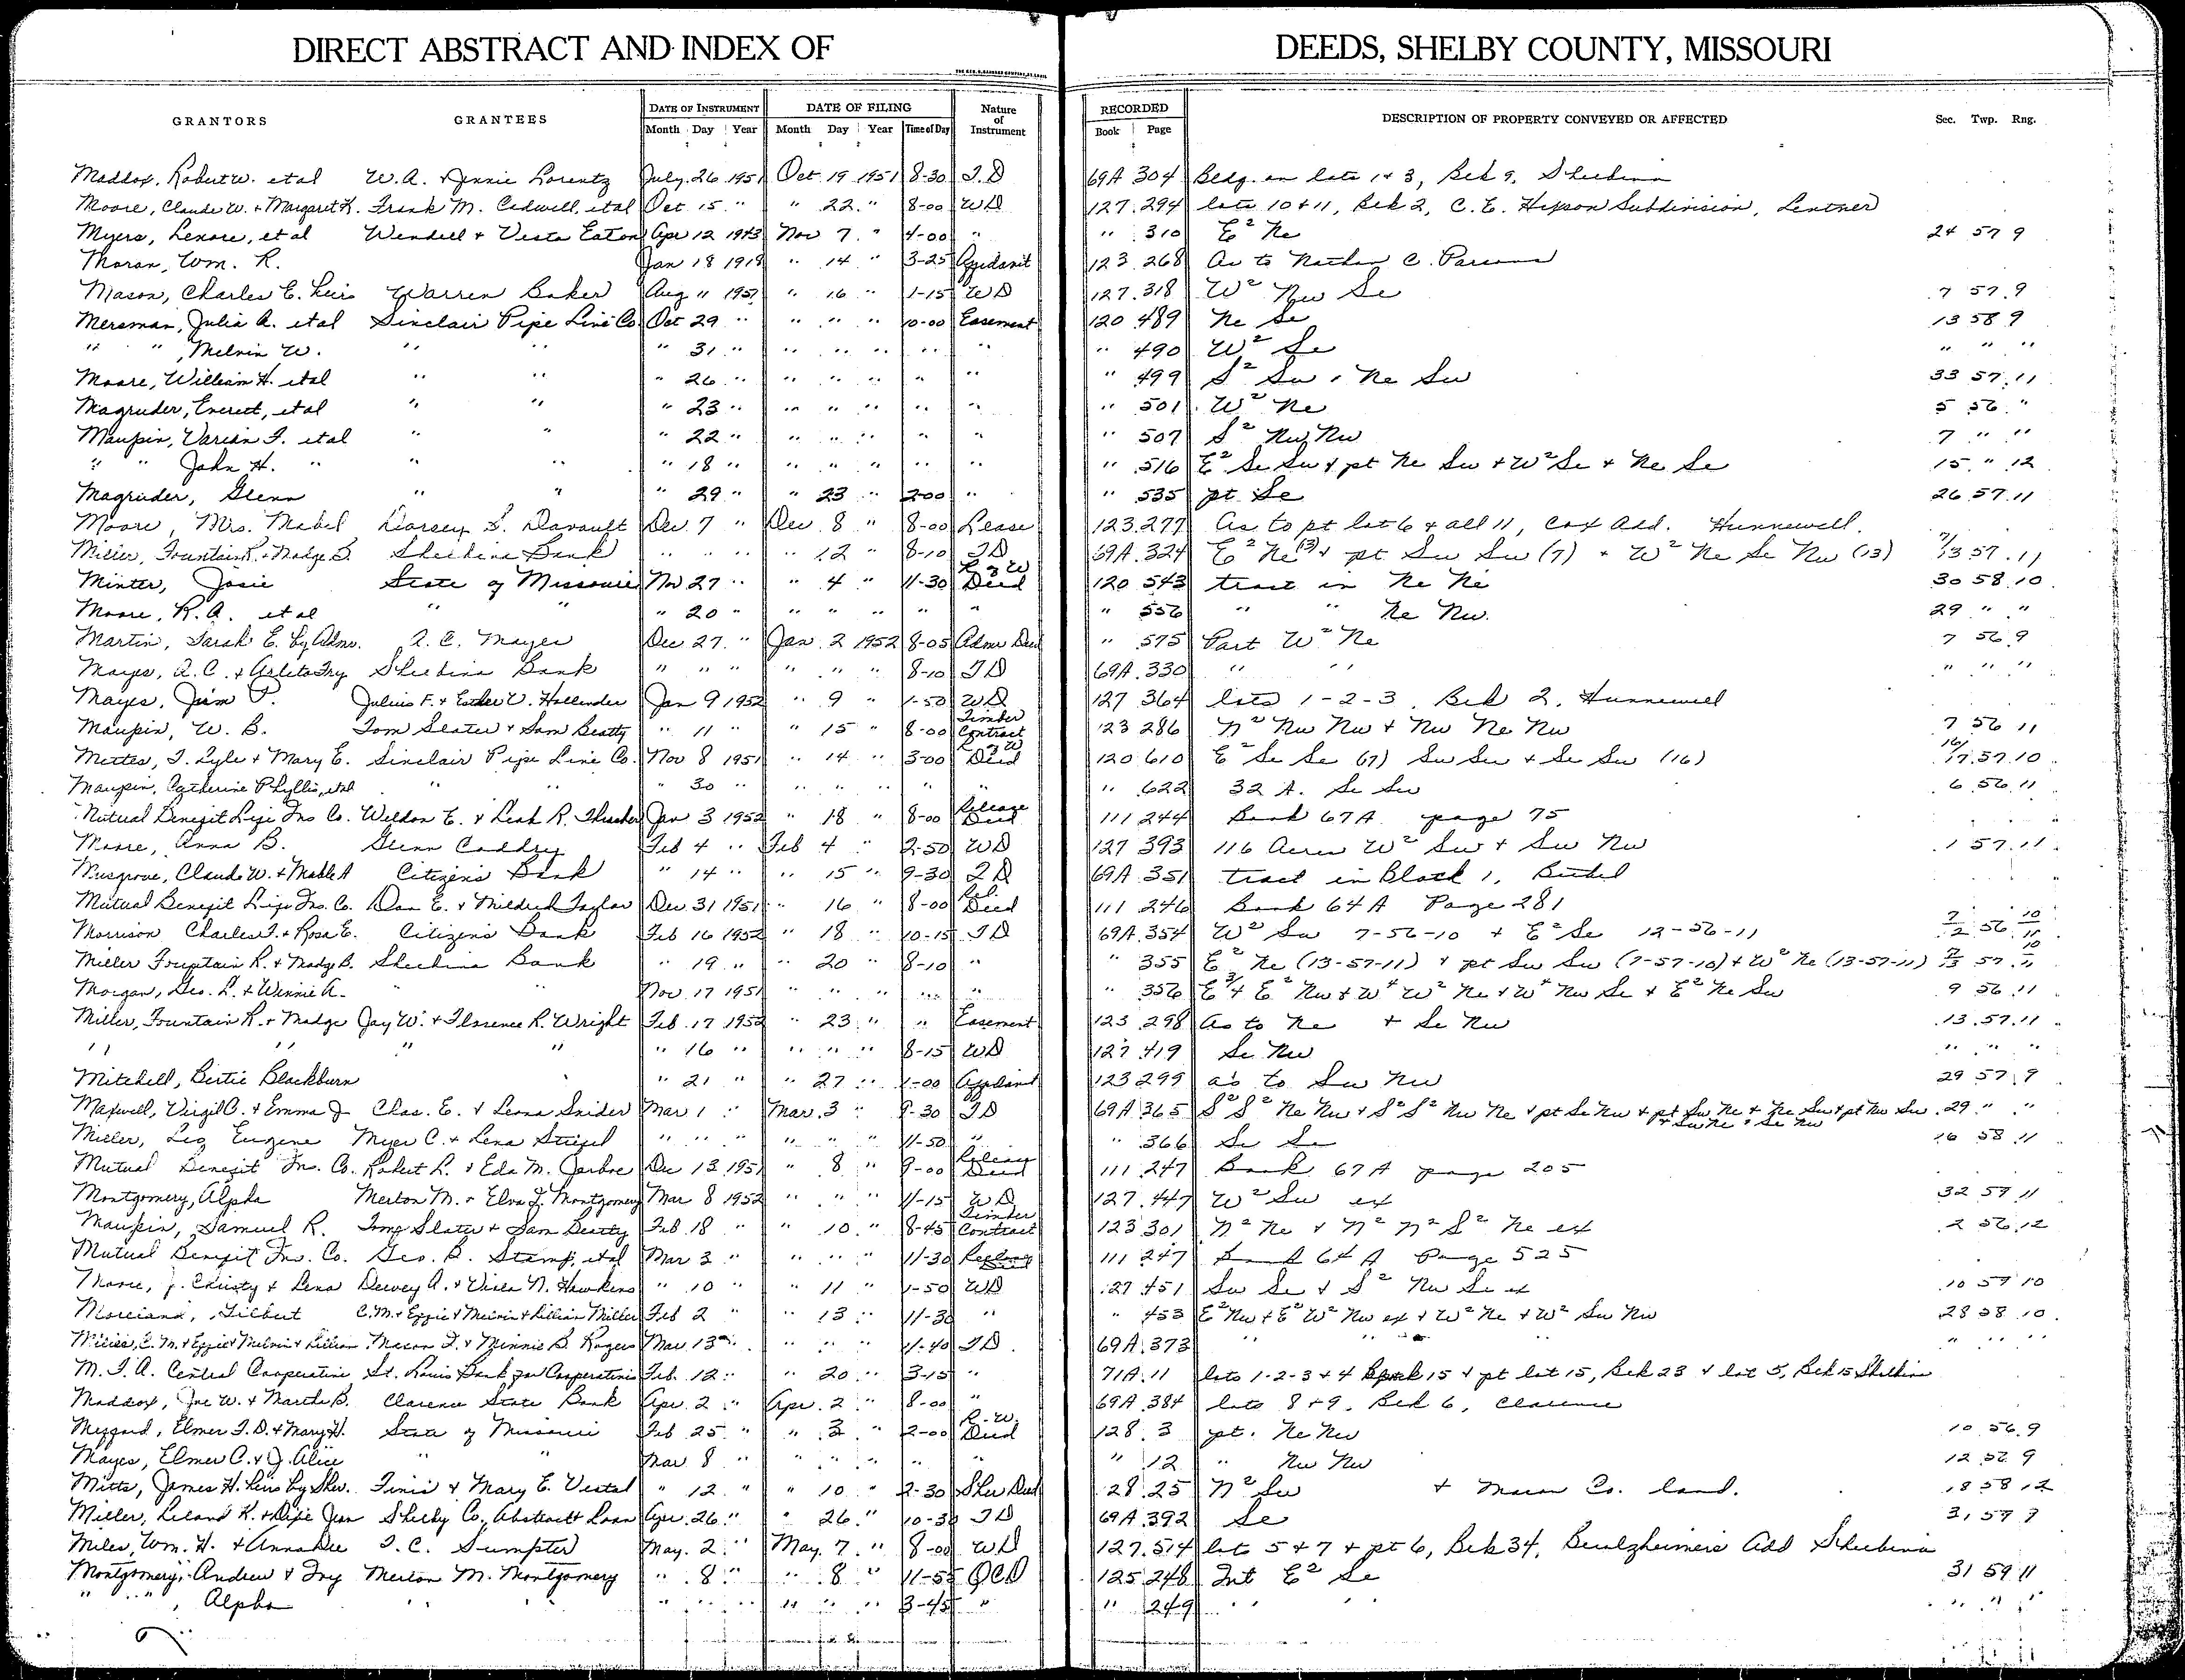 DIRECT ABSTRACT AND INDEX OF DEEDS, SHELBY COUNTY, MISSOURI
GRANTORS GRANTEES DATE OF INSTRUMENT DATE OF FILING Nature of Instrument RECORDED DESCRIPTION OF PROPERTY CONVEYED OR AFFECTED Sec. Twp. Rng.
Month Day Year Month Day Year Time of Day Book Page
Maddox, Robert W. et al W.A. & Jennie Lorentz July 26 1951 Oct 19 1951 8-30 T.D 69A 304 Bldg. on lots 1 & 3, Blk 9, Shelbina
Moore, Claude W. & Margaret K. Frank M. Cidwell, et al Oct 15 " " 22 " 8-00 WD 127 294 lots 10 & 11, Blk 2, C.E. Hixson Subdivision, Lentner
Myers, Lenore, et al Wendell & Vesta Eaton Apr 12 1943 Nov 7 " 4-00 " " 310 E² Ne 24 57 9
Moran, Wm. R. Jan 18 1919 " 14 " 3-25 Affidavit 123 268 As to Nathan C. Parsons
Mason, Charles E. heirs Warren Baker Aug " 1951 " 16 " 1-15 WD 127 318 W² Nw Se 7 57 9
Mersman, Julia A. et al Sinclair Pipe Line Co Oct 29 " " " " 10-00 Easement 120 489 Ne Se 13 58 9
" " , Melvin W. " " " 31 " " " " " " " 490 W² Se " " "
Moore, William H. et al " " " 26 " " " " " " " 499 S² Sw & Ne Sw 33 57 11
Magruder, Everett, et al " " " 23 " " " " " " " 501 W² Ne 5 56 "
Maupin, Varian F. et al " " " 22 " " " " " " " 507 S² Nw Nw 7 " "
" " John H. " " " " 18 " " " " " " " 516 E² Se Sw & pt Ne Sw & W² Se & Ne Se 15 " 12
Magruder, Glenn " " " 29 " " 23 " 2-00 " " 535 pt Se 26 57 11
Moore, Mrs. Mabel Dorsey L. Davault Dec 7 " Dec 8 " 8-00 Lease 123 277 As to pt lot 6 & all 11, Cox Add. Hunnewell
Miller, Fountain R. & Madge B. Shelbina Bank " " " " 12 " 8-10 TD 69A 324 E² Ne (13) & pt Sw Sw (7) & W² Ne Se Nw (13) 7/13 57 11
Minter, Josie State of Missouri Nov 27 " " 4 " 11-30 R of W Deed 120 543 tract in Ne Ne 30 58 10
Moore, R.A. et al " " " 20 " " " " " " " 556 " " Ne Nw 29 " "
Martin, Sarah E. by Adm. A. C. Mayes Dec 27 " Jan 2 1952 8-05 Adm Deed " 575 Part W² Ne 7 56 9
Mayes, A.C. & Arleta Fry Shelbina Bank " " " " " " 8-10 TD 69A 330 " " " " "
Mayes, Jim P. Julius F. & Esther V. Hollender Jan 9 1952 " 9 " 1-50 WD 127 364 lots 1-2-3, Blk 2, Hunnewell
Maupin, W. B. Tom Slater & Sam Beatty " 11 " " 15 " 8-00 Timber Contract 123 286 N² Nw Nw & Nw Ne Nw 7 56 11
Mettes, T. Lyle & Mary E. Sinclair Pipe Line Co. Nov 8 1951 " 14 " 3-00 R of W Deed 120 610 E² Se Se (17) Sw Sw & Se Sw (16) 16/17 57 10
Maupin, Catherine Phyllis, et al " " " 30 " " " " " " " 622 32 A. Se Sw 6 56 11
Mutual Benefit Life Ins Co. Weldon E. & Leah R. Thrasher Jan 3 1952 " 18 " 8-00 Release Deed 111 244 Book 67A page 75
Moore, Anna B. Glenn Caddry Feb 4 " Feb 4 " 2-50 WD 127 393 116 Acres W² Sw & Sw Nw 1 57 11
Musgrove, Claude W. & Mable A Citizens Bank " 14 " " 15 " 9-30 TD 69A 351 tract in Block 1, Bethel
Mutual Benefit Life Ins. Co. Dan E. & Mildred Taylor Dec 31 1951 " 16 " 8-00 Rel. Deed 111 246 Book 64A Page 281
Morrison Charles T. & Rosa E. Citizens Bank Feb 16 1952 " 18 " 10-15 TD 69A 354 W² Sw 7-56-10 & E² Se 12-56-11 7/12 56 10/11
Miller Fountain R. & Madge B. Shelbina Bank " 19 " " 20 " 8-10 " " 355 E² Ne (13-57-11) & pt Sw Sw (7-57-10) & W² Ne (13-57-11) 7/13 57 10/11
Morgan, Geo. L. & Winnie A. " " Nov 17 1951 " " " " " " 356 E¾ E² Nw & W⁴ W² Ne & W⁴ Nw Se & E² Ne Sw 9 56 11
Miller, Fountain R. & Madge Jay W. & Florence R. Wright Feb 17 1952 " 23 " " Easement 123 298 As to Ne & Se Nw 13 57 11
" " " " " 16 " " " " 8-15 WD 127 419 Se Nw " " "
Mitchell, Bertie Blackburn " 21 " " 27 " 1-00 Affidavit 123 299 as to Sw Nw 29 57 9
Maxwell, Virgil C. & Emma J Chas. E. & Leona Snider Mar 1 " Mar 3 " 9-30 TD 69A 365 S² S² Ne Nw & S² S² Nw Ne & pt Se Nw & pt Sw Ne & Ne Sw & pt Nw Sw 29 " "
& Sw Ne & Se Nw
Miller, Leo Eugene Myer C. & Lena Striegel " " " " " " 11-50 " " 366 Se Se 16 58 11
Mutual Benefit Ins. Co. Robert L. & Eda M. Jarboe Dec 13 1951 " 8 " 9-00 Release Deed 111 247 Book 67A page 205
Montgomery, Alpha Merton M. & Elva J. Montgomery Mar 8 1952 " " " 11-15 WD 127 447 W² Sw ex 32 59 11
Maupin, Samuel R. Tom Slater & Sam Beatty Feb 18 " " 10 " 8-45 Timber Contract 123 301 N² Ne & N² N² S² Ne ex 2 56 12
Mutual Benefit Ins. Co. Geo. B. Stamp, et al Mar 3 " " " " 11-30 Release Deed 111 247 Book 64A Page 525
Moore, J. Christy & Lena Dewey A. & Viola N. Hawkins " 10 " " 11 " 1-50 WD 127 451 Sw Se & S² Nw Se ex 10 57 10
Morciana, Gilbert C.M. & Effie & Melvin & Lillian Miller Feb 2 " " 13 " 11-30 " " 453 E² Nw & E² W² Nw ex & W² Ne & W² Sw Nw 28 58 10
Miller, C. M. & Effie & Melvin & Lillian Macon F. & Minnie B. Rogers Mar 13 " " " " 11-40 TD 69A 373 " " " " "
M.F.A. Central Cooperative St. Louis Bank for Cooperatives Feb 12 " " 20 " 3-15 " 71A 11 lots 1-2-3 & 4 Block 15 & pt lot 15, Blk 23 & lot 5, Blk 15 Shelbina
Maddox, Joe W. & Martha B. Clarence State Bank Apr 2 " Apr 2 " 8-00 " 69A 384 lots 8 & 9, Blk 6, Clarence
Meggard, Elmer F.D. & Mary H. State of Missouri Feb 25 " " 3 " 2-00 R.W. Deed 128 3 pt. Ne Nw 10 56 9
Mayes, Elmer C. & J. Alice " " Mar 8 " " " " " " " 12 " Nw Nw 12 56 9
Mitts, James H. heirs by Shr. Finis & Mary E. Vestal " 12 " " 10 " 2-30 Sher Deed 128 25 N² Sw & Macon Co. land. 18 58 12
Miller, Leland K. & Dixie Jean Shelby Co. Abstract & Loan Apr 26 " " 26 " 10-30 TD 69A 392 Se 31 57 9
Miles, Wm. H. & Anna Dee I. C. Sumpter May 2 " May 7 " 8-00 WD 127 514 lots 5 & 7 & pt 6, Blk 34, Benlzheimers Add Shelbina
Montgomery, Andrew & Ivy Merton M. Montgomery " 8 " " 8 " 11-55 QCD 125 248 Int E² Se 31 59 11
" " , Alpha " " " " " " " " 3-45 " " 249 " " " " "